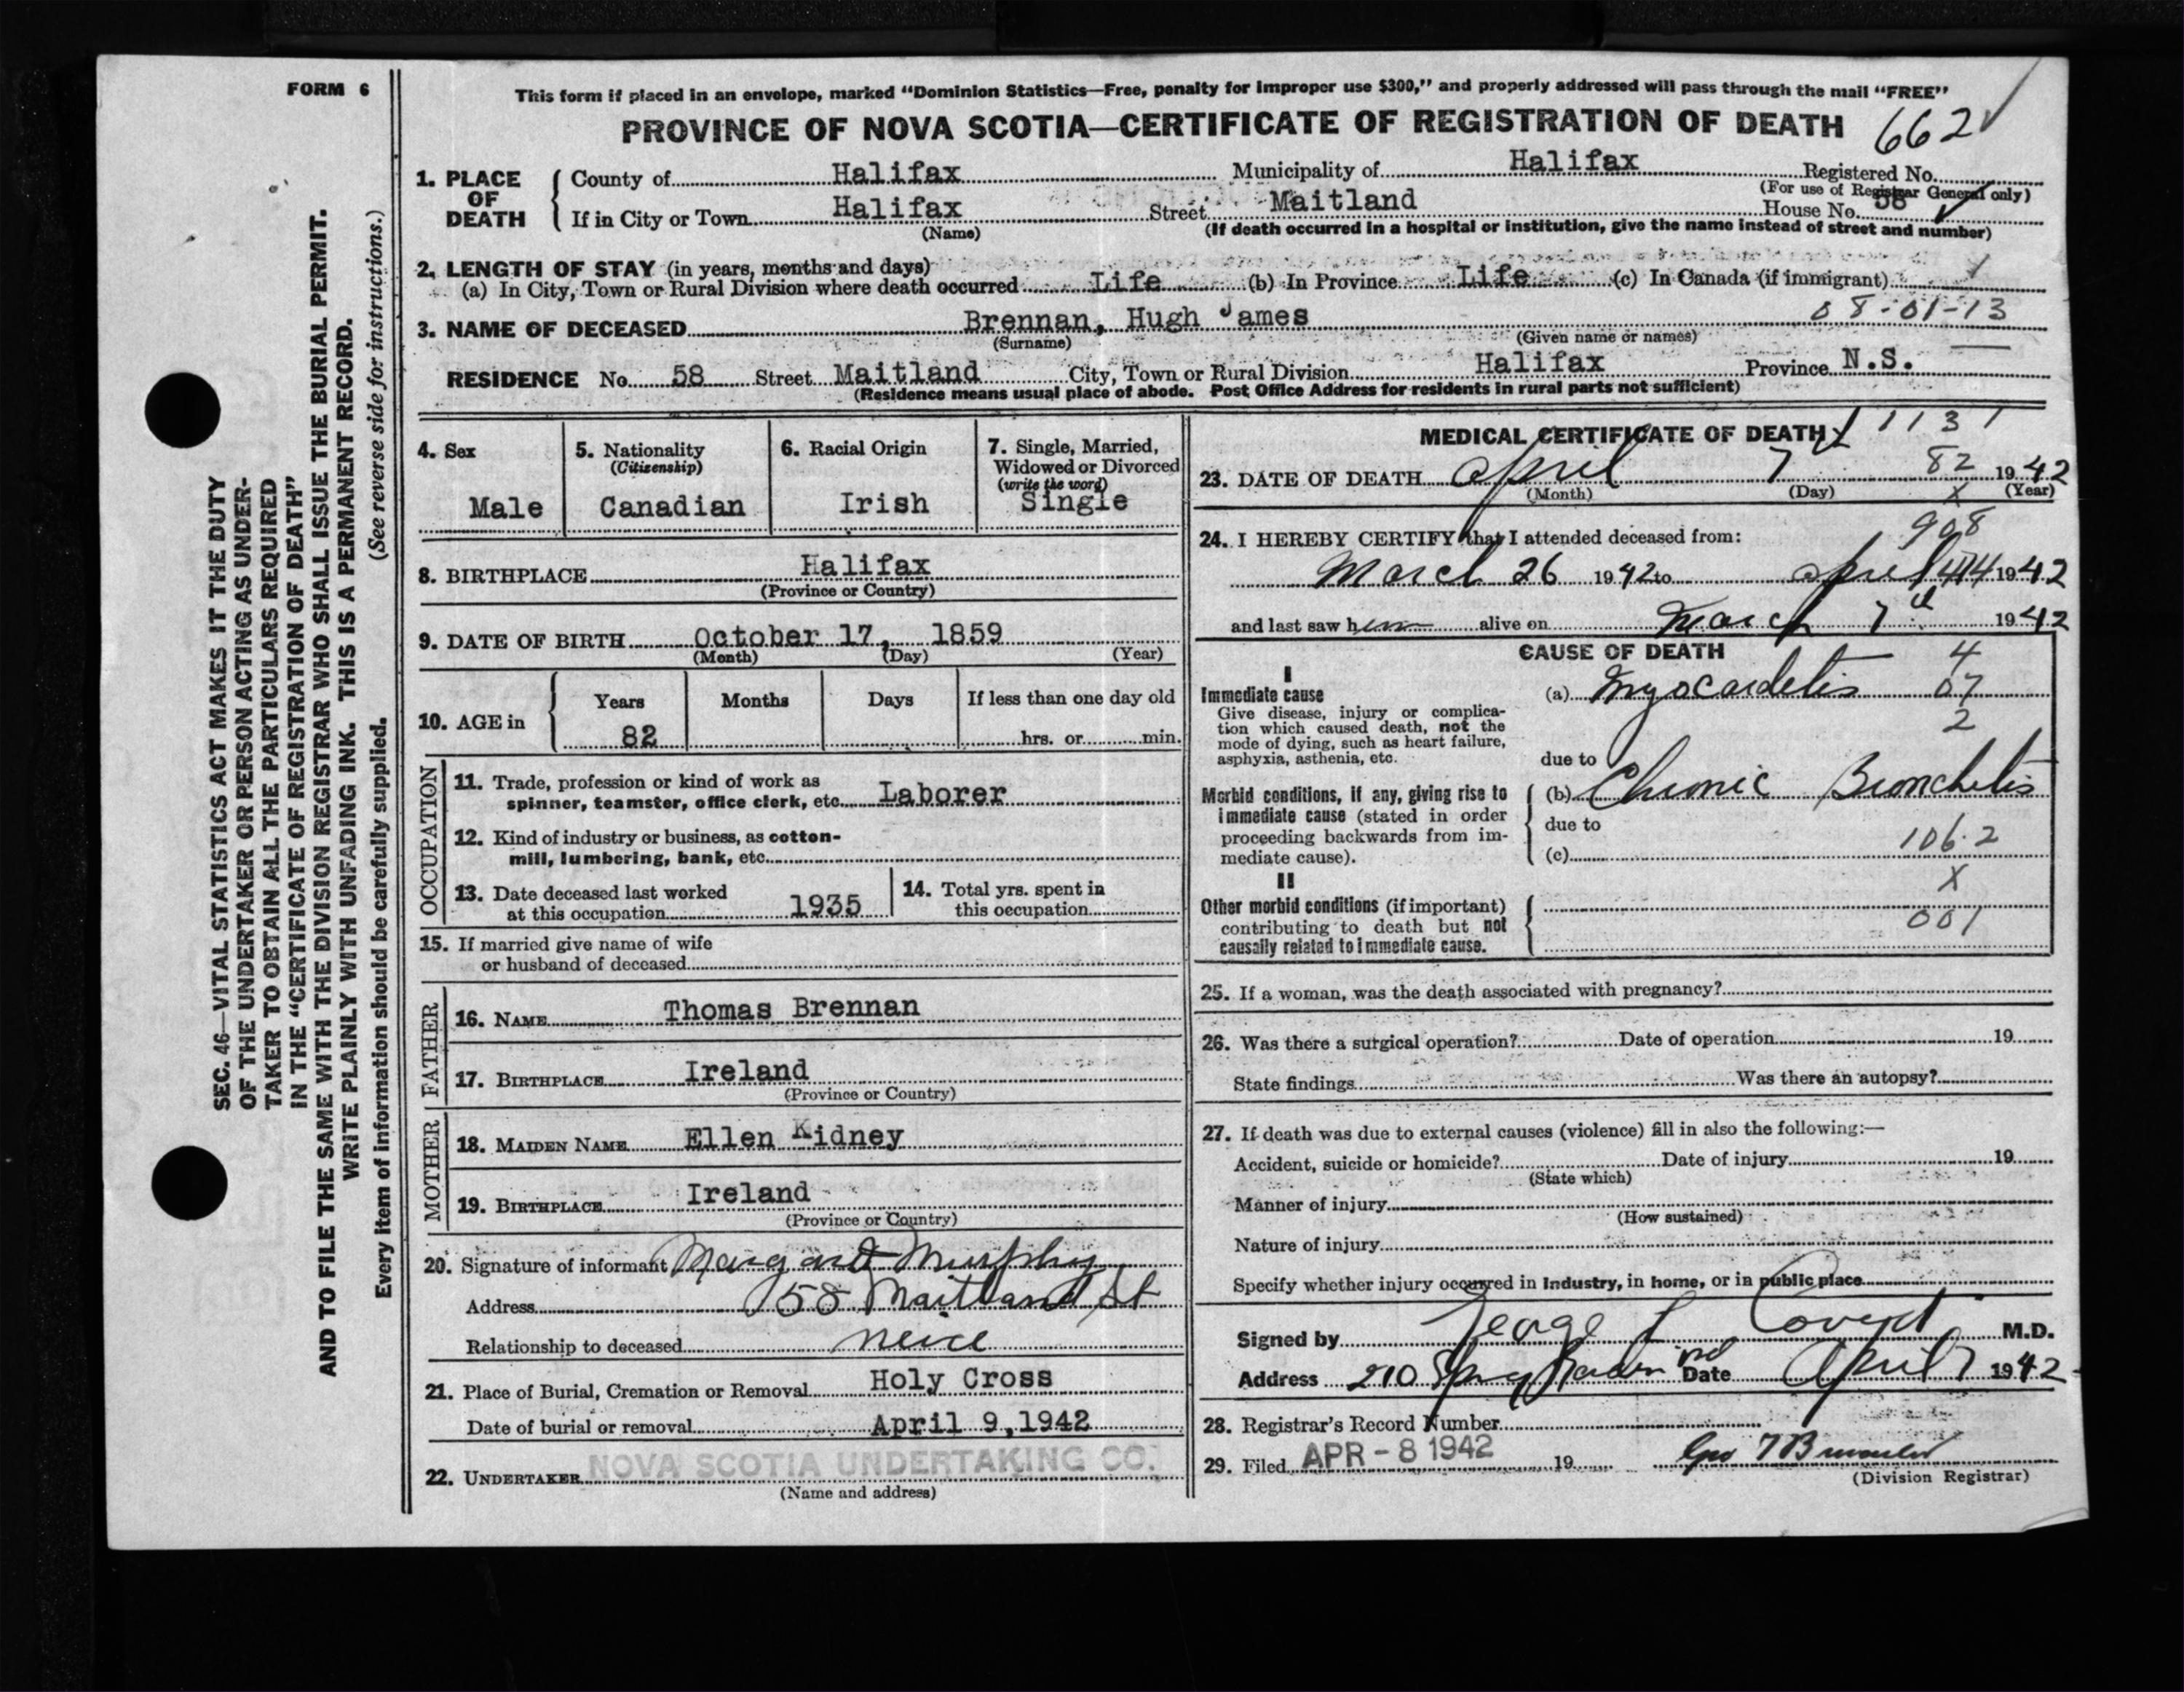 FORM 6
SEC. 46—VITAL STATISTICS ACT MAKES IT THE DUTY
OF THE UNDERTAKER OR PERSON ACTING AS UNDER-
TAKER TO OBTAIN ALL THE PARTICULARS REQUIRED
IN THE "CERTIFICATE OF REGISTRATION OF DEATH"
AND TO FILE THE SAME WITH THE DIVISION REGISTRAR WHO SHALL ISSUE THE BURIAL PERMIT.
WRITE PLAINLY WITH UNFADING INK. THIS IS A PERMANENT RECORD.
Every item of information should be carefully supplied. (See reverse side for instructions.)
This form if placed in an envelope, marked "Dominion Statistics—Free, penalty for improper use $300," and properly addressed will pass through the mail "FREE"
PROVINCE OF NOVA SCOTIA—CERTIFICATE OF REGISTRATION OF DEATH 662
1. PLACE OF DEATH County of Halifax Municipality of Halifax Registered No.
(For use of Registrar General only)
If in City or Town Halifax Street Maitland House No. 58
(Name) (If death occurred in a hospital or institution, give the name instead of street and number)
2. LENGTH OF STAY (in years, months and days)
(a) In City, Town or Rural Division where death occurred Life (b) In Province Life (c) In Canada (if immigrant)
08-01-13
3. NAME OF DECEASED Brennan, Hugh James
(Surname) (Given name or names)
RESIDENCE No. 58 Street Maitland City, Town or Rural Division Halifax Province N.S.
(Residence means usual place of abode. Post Office Address for residents in rural parts not sufficient)
4. Sex Male
5. Nationality (Citizenship) Canadian
6. Racial Origin Irish
7. Single, Married, Widowed or Divorced (write the word) Single
8. BIRTHPLACE Halifax
(Province or Country)
9. DATE OF BIRTH October 17, 1859
(Month) (Day) (Year)
10. AGE in Years Months Days If less than one day old
82 hrs. or min.
OCCUPATION
11. Trade, profession or kind of work as
spinner, teamster, office clerk, etc. Laborer
12. Kind of industry or business, as cotton-
mill, lumbering, bank, etc.
13. Date deceased last worked
at this occupation 1935
14. Total yrs. spent in
this occupation
15. If married give name of wife
or husband of deceased
FATHER
16. NAME Thomas Brennan
17. BIRTHPLACE Ireland
(Province or Country)
MOTHER
18. MAIDEN NAME Ellen Kidney
19. BIRTHPLACE Ireland
(Province or Country)
20. Signature of informant Margaret Murphy
Address 58 Maitland St
Relationship to deceased neice
21. Place of Burial, Cremation or Removal Holy Cross
Date of burial or removal April 9, 1942
22. UNDERTAKER NOVA SCOTIA UNDERTAKING CO.
(Name and address)
MEDICAL CERTIFICATE OF DEATH 1131
82
23. DATE OF DEATH April 7 1942
(Month) (Day) (Year)
X
908
24. I HEREBY CERTIFY that I attended deceased from:
March 26 1942 to April 1942
and last saw him alive on March 7th 1942
CAUSE OF DEATH
4
07
2
I
Immediate cause
Give disease, injury or complica-
tion which caused death, not the
mode of dying, such as heart failure,
asphyxia, asthenia, etc.
(a) Myocarditis
due to
Morbid conditions, if any, giving rise to
immediate cause (stated in order
proceeding backwards from im-
mediate cause).
(b) Chronic Bronchitis
due to
(c) 106.2
X
001
II
Other morbid conditions (if important)
contributing to death but not
causally related to immediate cause.
25. If a woman, was the death associated with pregnancy?
26. Was there a surgical operation? Date of operation 19
State findings Was there an autopsy?
27. If death was due to external causes (violence) fill in also the following:—
Accident, suicide or homicide? Date of injury 19
(State which)
Manner of injury
(How sustained)
Nature of injury
Specify whether injury occurred in industry, in home, or in public place
Signed by George Covert M.D.
Address 210 Spring Garden Rd Date April 7 1942
28. Registrar's Record Number
29. Filed APR - 8 1942 19
(Division Registrar)